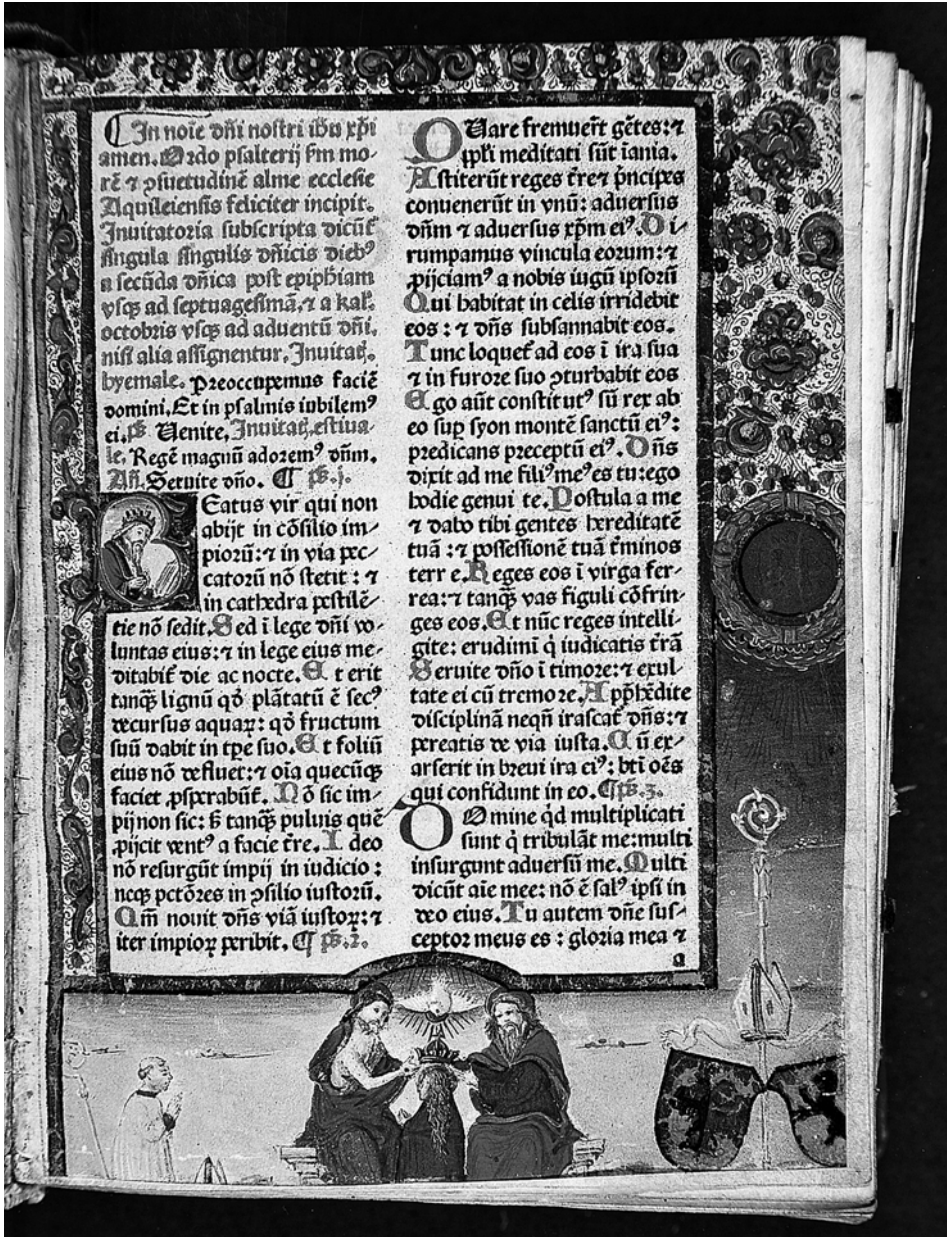 ¶ In noie dñi nostri ihu xp̃i
amen. Ordo psalterij ẜm mo⸗
rẽ ⁊ ↄsuetudinẽ alme ecclesie
Aquileiensis feliciter incipit.
Inuitatoria subscripta dicũt̃
singula singulis dñicis diebꝰ
a secũda dñica post epiphiam
vsqꝫ ad septuagesimã, ⁊ a kal̃.
octobris vsqꝫ ad aduentũ dñi,
nisi alia assignentur. Inuitat̃.
hyemale. Preoccupemus faciẽ
domini, Et in psalmis iubilemꝰ
ei. ps̃. Uenite, Inuitat̃. estiua⸗
le. Regẽ magnũ adoremꝰ dñm.
Añ. Seruite dño. ¶ ps̃. j.
BEatus vir qui non
abijt in cõsilio im⸗
piorũ: ⁊ in via pec⸗
catorũ nõ stetit : ⁊
in cathedra pestilẽ⸗
tie nõ sedit. Sed ĩ lege dñi vo⸗
luntas eius: ⁊ in lege eius me⸗
ditabit̃ die ac nocte. Et erit
tanqꝫ lignũ qđ plãtatũ ẽ secꝰ
decursus aquaꝝ: qđ fructum
suũ dabit in tpe suo. Et foliũ
eius nõ defluet: ⁊ oĩa quecũqꝫ
faciet ꝓsperabũt̃. Nõ sic im⸗
pij non sic: ẜ tanqꝫ puluis quẽ
ꝓijcit ventꝰ a facie t̃re. Ideo
nõ resurgũt impij in iudicio :
neqꝫ pctõres in ↄsilio iustorũ.
Qm̃ nouit dñs viã iustoꝝ: ⁊
iter impioꝝ peribit. ¶ ps̃. 2.
QUare fremuer̃t gẽtes: ⁊
ppl̃i meditati sũt ĩania.
Astiterũt reges t̃re ⁊ p̃ncipes
conuenerũt in vnũ: aduersus
dñm ⁊ aduersus xp̃m eiꝰ. Di⸗
rumpamus vincula eorum: ⁊
ꝓijciamꝰ a nobis iugũ ipsorũ
Qui habitat in celis irridebit
eos : ⁊ dñs subsannabit eos.
Tunc loquet̃ ad eos ĩ ira sua
⁊ in furore suo ↄturbabit eos
Ego aũt constitutꝰ sũ rex ab
eo sup̃ syon montẽ sanctũ eiꝰ:
predicans preceptũ eiꝰ. Dñs
dixit ad me filiꝰ meꝰ es tu: ego
hodie genui te. Postula a me
⁊ dabo tibi gentes hereditatẽ
tuã : ⁊ possessionẽ tuã t̃minos
terr e. Reges eos ĩ virga fer⸗
rea: ⁊ tanqꝫ vas figuli cõfrin⸗
ges eos. Et nũc reges intelli⸗
gite: erudimĩ q̇ iudicatis t̃rã
Seruite dño ĩ timore: ⁊ exul⸗
tate ei cũ tremore. App̃hẽdite
disciplinã neqñ irascat̃ dñs: ⁊
pereatis de via iusta. Cũ ex⸗
arserit in breui ira eiꝰ: bt̃i oẽs
qui confidunt in eo. ¶ ps̃. 3.
DOmine qd̓ multiplicati
sunt q̇ tribulãt me: multi
insurgunt aduersũ me. Multi
dicũt aĩe mee: nõ ẽ salꝰ ipsi in
deo eius. Tu autem dñe sus⸗
ceptor meus es : gloria mea ⁊
a